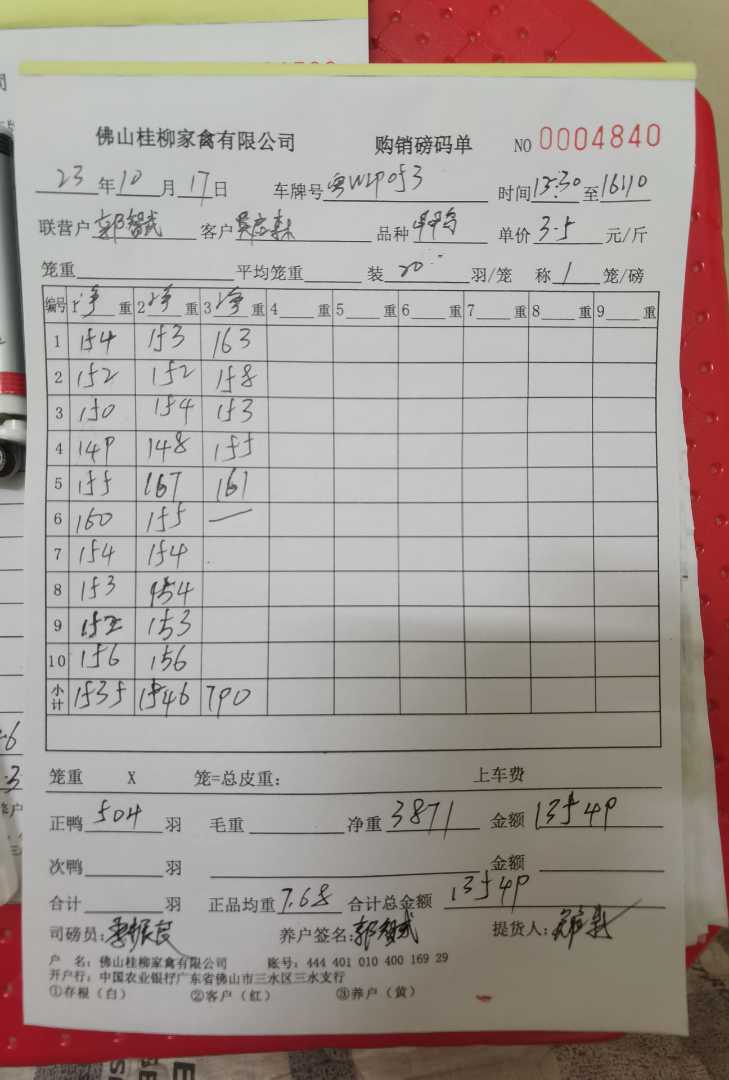 佛山桂柳家禽有限公司 购销磅码单 NO 0004840
23 年 10 月 17 日 车牌号 粤W2P053 时间 13:30 至 16:10
联营户 郭智武 客户 单价 3.5 元/斤 品种
笼重 平均笼重 装 20 羽/笼 称 1 笼/磅
编号 1 净 重 2 净 重 3 净 重 4 重 5 重 6 重 7 重 8 重 9 重
1 154 153 163
2 152 152 158
3 150 154 153
4 149 148 155
5 155 167 161
6 160 155 —
7 154 154
8 153 154
9 152 153
10 156 156
小计 1535 1546 790
笼重 X 笼=总皮重: 上车费
正鸭 504 羽 毛重 净重 3871 金额 13549
次鸭 羽 金额
合计 羽 正品均重 7.68 合计总金额 13549
司磅员: 李振良 养户签名: 郭智武 提货人:
户 名: 佛山桂柳家禽有限公司 账号: 444 401 010 400 169 29
开户行: 中国农业银行广东省佛山市三水区三水支行
①存根（白） ②客户（红） ③养户（黄）